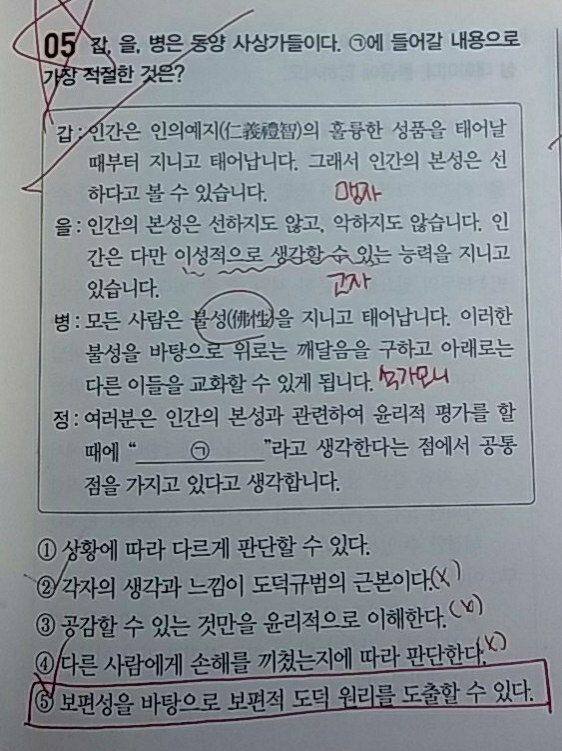 05 갑, 을, 병은 동양 사상가들이다. ㉠에 들어갈 내용으로
가장 적절한 것은?
갑: 인간은 인의예지(仁義禮智)의 훌륭한 성품을 태어날
때부터 지니고 태어납니다. 그래서 인간의 본성은 선
하다고 볼 수 있습니다. 맹자
을: 인간의 본성은 선하지도 않고, 악하지도 않습니다. 인
간은 다만 이성적으로 생각할 수 있는 능력을 지니고
있습니다. 고자
병: 모든 사람은 불성(佛性)을 지니고 태어납니다. 이러한
불성을 바탕으로 위로는 깨달음을 구하고 아래로는
다른 이들을 교화할 수 있게 됩니다. 석가모니
정: 여러분은 인간의 본성과 관련하여 윤리적 평가를 할
때에 “ ㉠ ”라고 생각한다는 점에서 공통
점을 가지고 있다고 생각합니다.
① 상황에 따라 다르게 판단할 수 있다.
② 각자의 생각과 느낌이 도덕규범의 근본이다.(X)
③ 공감할 수 있는 것만을 윤리적으로 이해한다.(X)
④ 다른 사람에게 손해를 끼쳤는지에 따라 판단한다.(X)
⑤ 보편성을 바탕으로 보편적 도덕 원리를 도출할 수 있다.